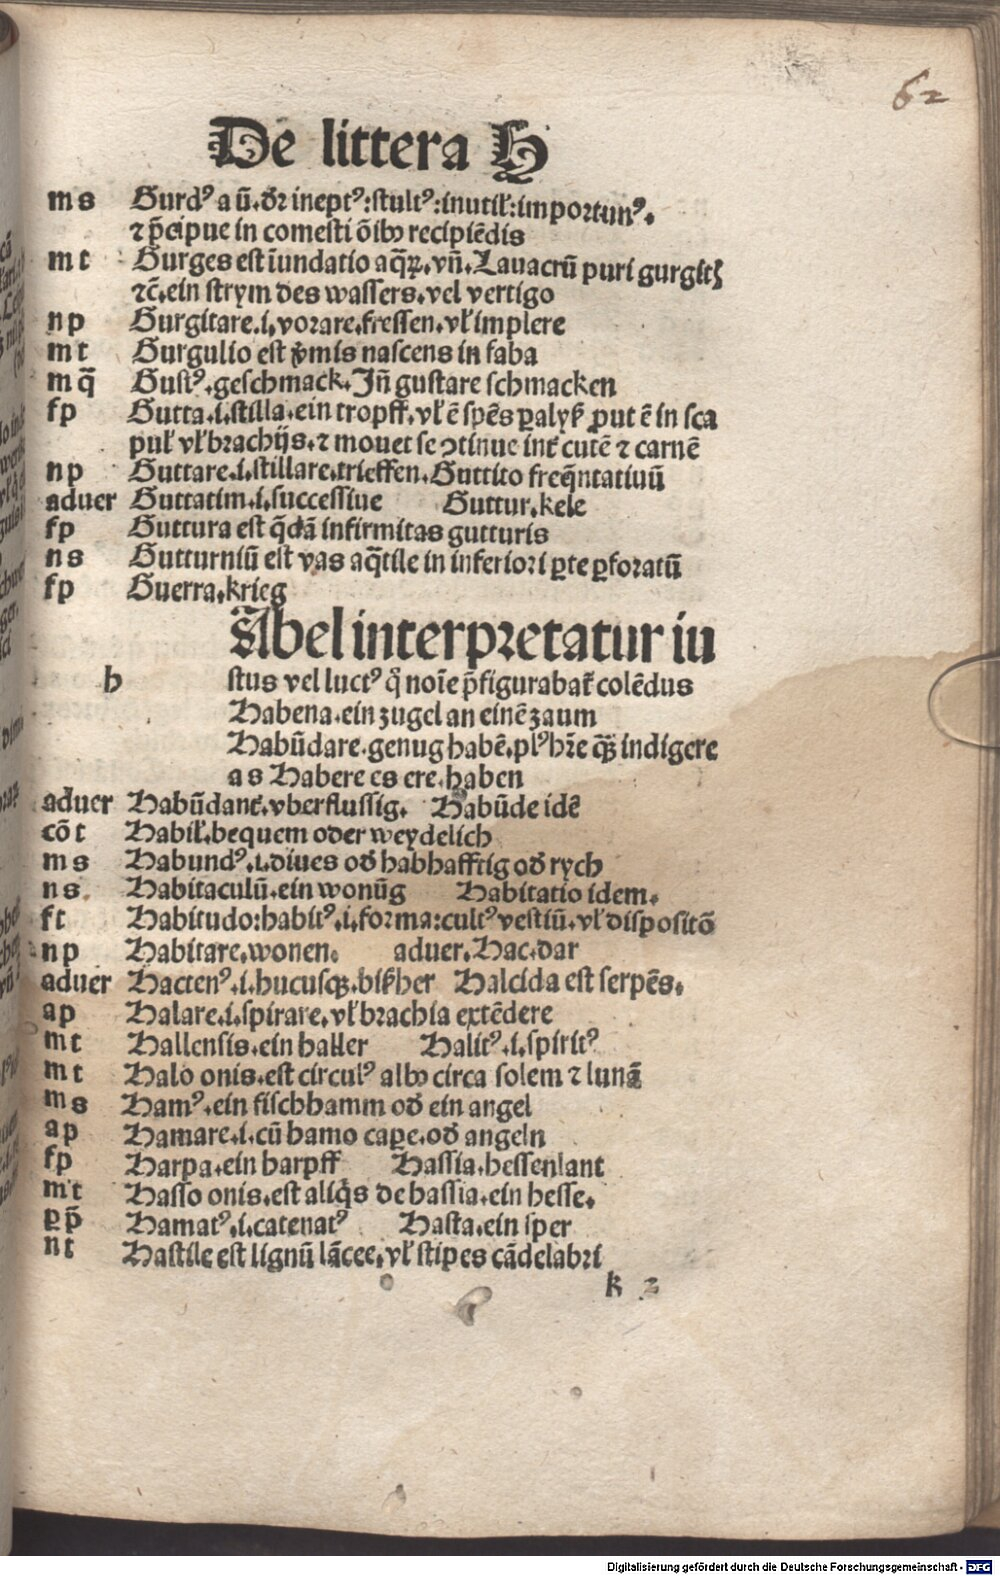 62
De littera H
m s Gurdꝰ a ū. dr̄ ineptꝰ: stultꝰ: inutił: importunꝰ.
⁊ p̄cipue in comesti ōibꝫ recipiēdis
m t Gurges est īundatio aq̄ꝝ. vn̄. Lauacrū puri gurgitꝭ
⁊c̄. ein strym des wassers. vel vertigo
n p Gurgitare. i. vorare. fressen. vł implere
m t Gurgulio est v̓mis nascens in faba
m q̄ Gustꝰ. geschmack. Jn̄ gustare schmacken
f p Gutta. i. stilla. ein tropff. vł ē spēs ꝑalyẜ ꝓut ē in sca
puł vł brachijs. ⁊ mouet se ꝯtinue int̉ cutē ⁊ carnē
n p Guttare. i. stillare. trieffen. Guttito freq̄ntatiuū
aduer Guttatim. i. successiue Guttur. kele
f p Guttura est q̄dā infirmitas gutturis
n s Gutturniū est vas aq̄tile in inferiori ꝑte ꝑforatū
f p Guerra. krieg
Abel interpretatur iu
h stus vel luctꝰ q̊ noīe p̄figurabat̉ colēdus
Habena. ein zugel an einē zaum
Habūdare. genug habē. plꝰ hr̄e q̄ꝫ indigere
a s Habere es ere. haben
aduer Habūdant̉. vberflussig. Habūde idē
cō t Habił. bequem oder weydelich
m s Habundꝰ. i. diues od̉ habhafftig od̉ rych
n s. Habitaculū. ein wonūg Habitatio idem.
f t Habitudo: habitꝰ. i. forma: cultꝰ vestiū. vł dispositō
n p Habitare. wonen. aduer. Hac. dar
aduer Hactenꝰ. i. hucusqꝫ. bißher Halcida est serpēs.
a p Halare. i. spirare. vł brachia extēdere
m t Hallensis. ein haller Halitꝰ. i. spiritꝰ
m t Halo onis. est circulꝰ albꝫ circa solem ⁊ lunā
m s Hamꝰ. ein fischhamm od̉ ein angel
a p Hamare. i. cū hamo caꝑe. od̉ angeln
f p Harpa. ein harpff Hassia. hessenlant
m t Hasso onis. est aliq̇s de hassia. ein hesse.
ꝑ p̄ Hamatꝰ. i. catenatꝰ Hasta. ein sper
n t Hastile est lignū lācee. vł stipes cādelabri
k 2
Digitalisierung gefördert durch die Deutsche Forschungsgemeinschaft - DFG